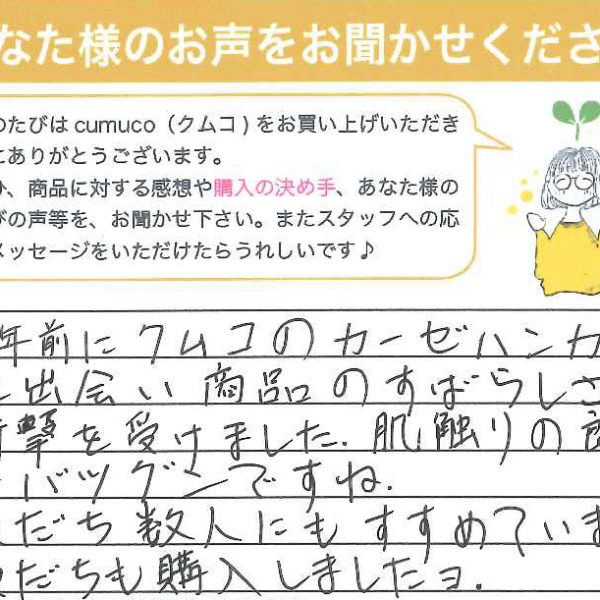 なた様のお声をお聞かせくださ
のたびはcumuco（クムコ）をお買い上げいただき
にありがとうございます。
、商品に対する感想や購入の決め手、あなた様の
びの声等を、お聞かせ下さい。またスタッフへの応
メッセージをいただけたらうれしいです♪
年前にクムコのカーゼハンカ
出会い商品のすばらしさ
撃を受けました.肌触りの
バツグンですね.
だち数人にもすすめていま
だちも購入しましたヨ.